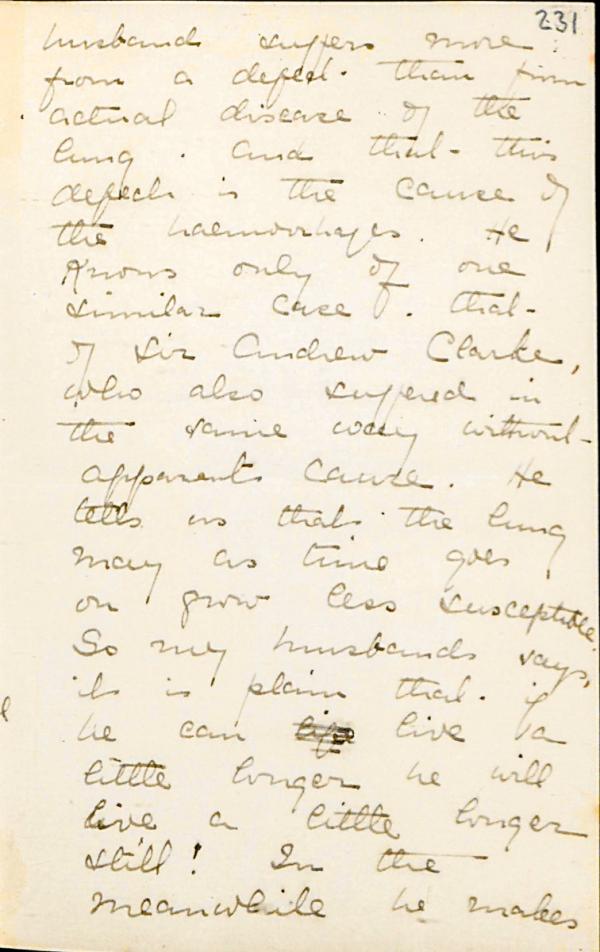 231
husband suffers more
from a defect than from
actual disease of the
lung. And that this
defect is the cause of
the haemorrhages. He
knows only of one
similar case. that
of Sir Andrew Clarke,
who also suffered in
the same way without
apparent cause. He
tells us that the lung
may as time goes
on grow less susceptible.
So my husbands says,
it is plain that if
he can life live a
little longer he will
live a little longer
still! In the
meanwhile he makes